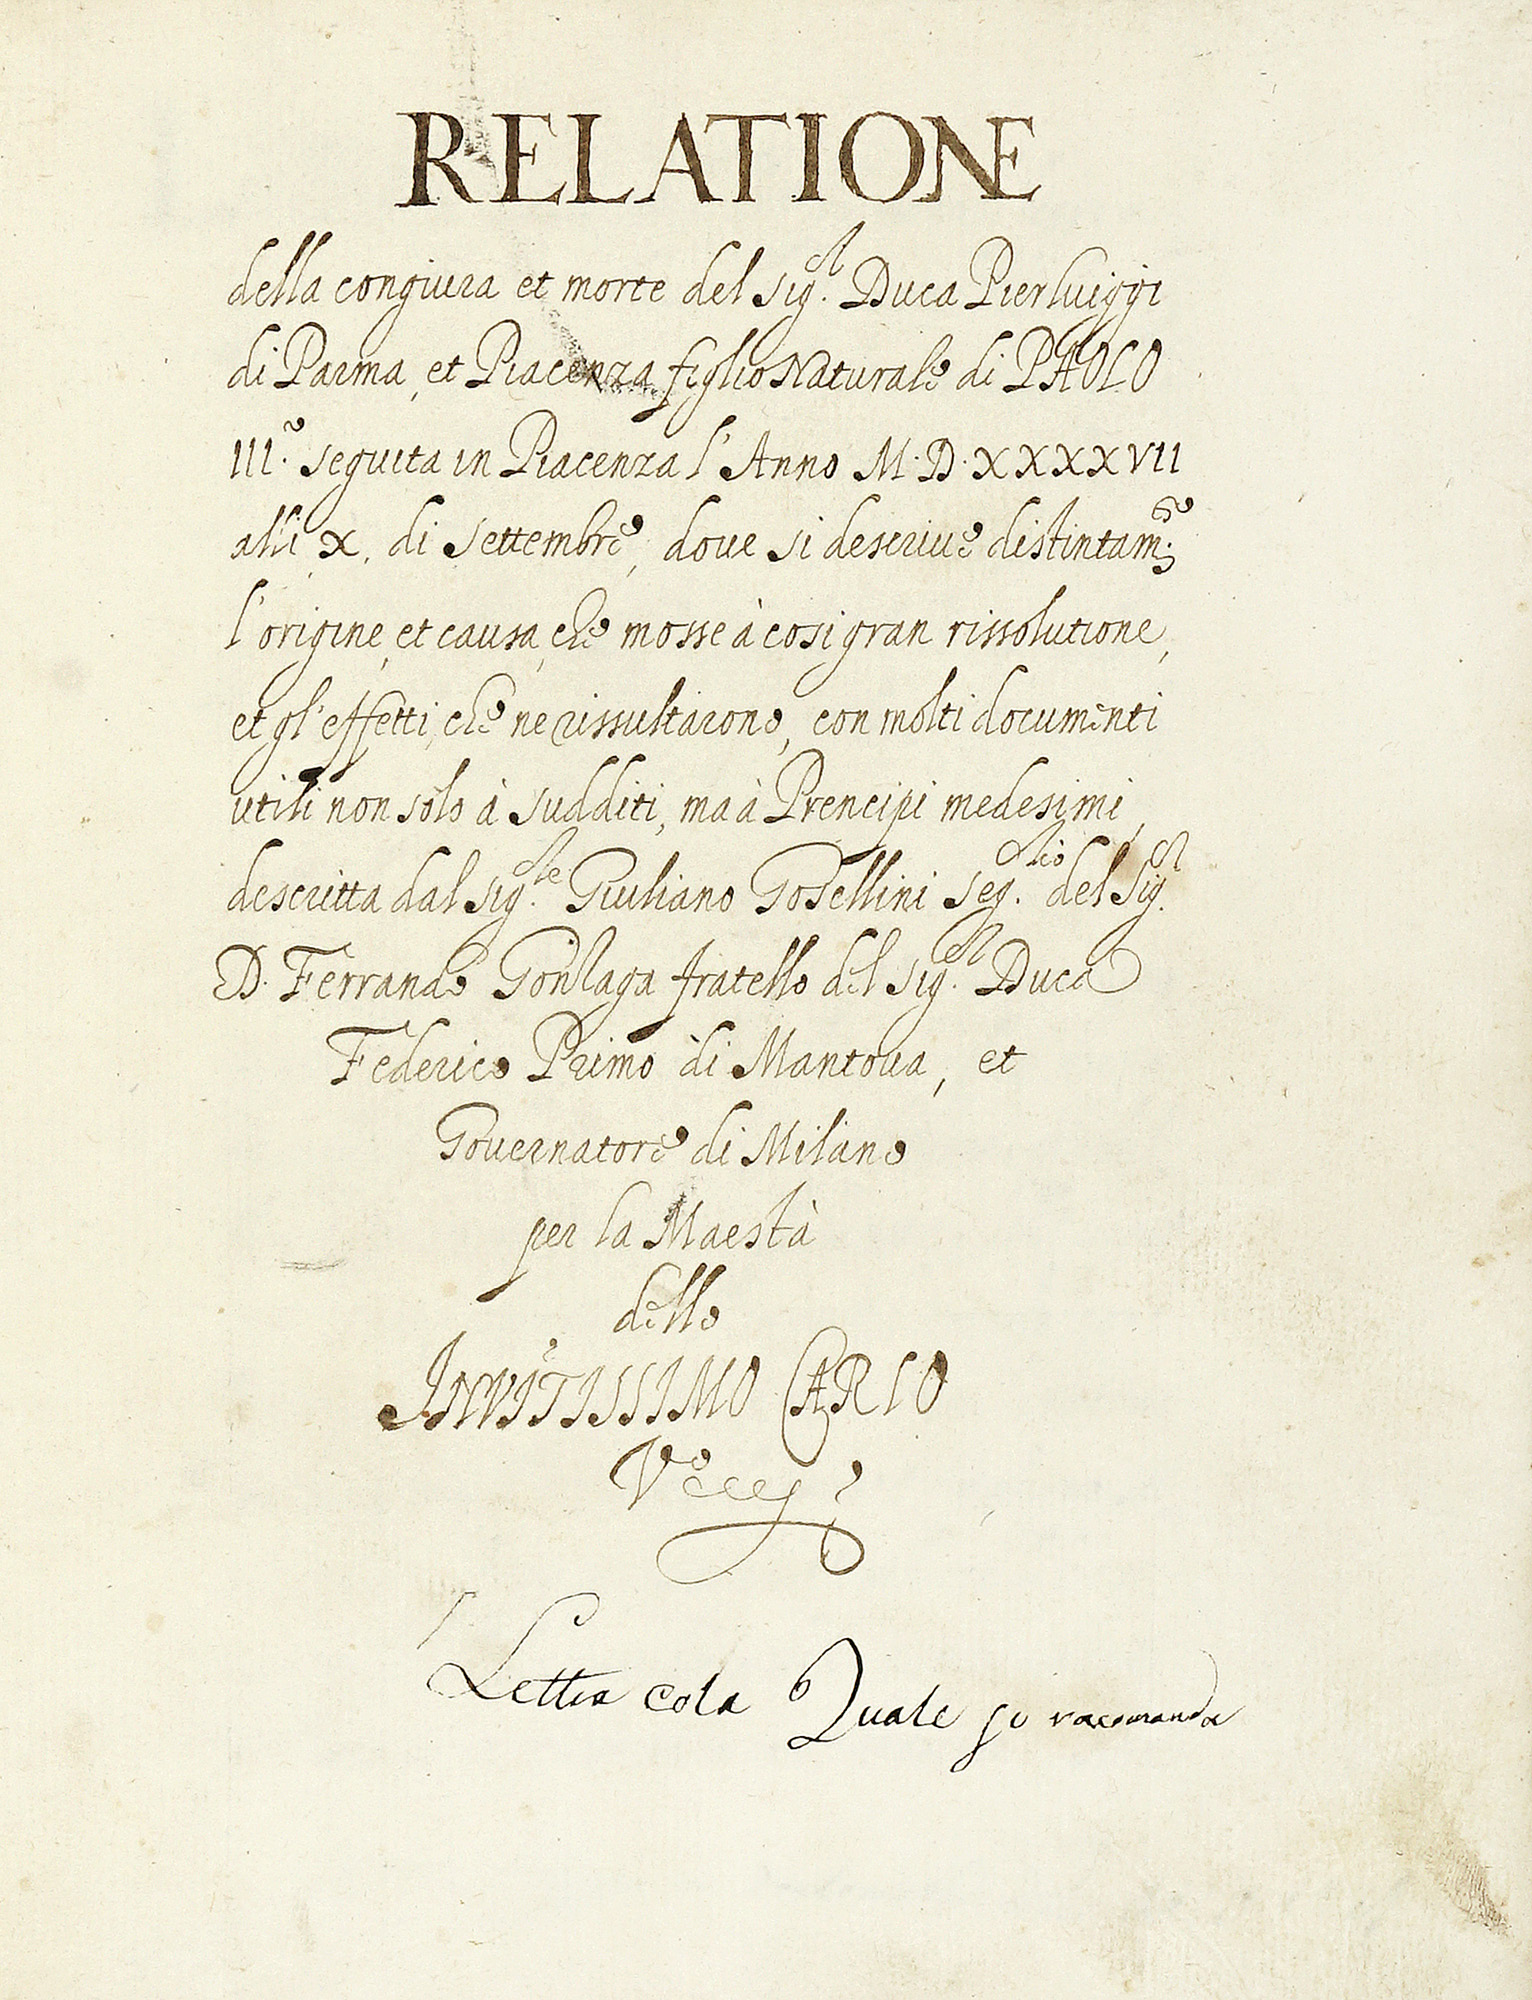 RELATIONE
della congiura et morte del Sig.r Duca Pier Luiggi
di Parma, et Piacenza figlio Naturale di PAOLO
III.º seguita in Piacenza l'Anno M.D.XXXXVII
alli X. di Settembre, doue si descriue distintam.te
l'origine, et causa, che mosse à cosi gran rissolutione,
et gl'effetti, che ne rissultarono, con molti documenti
utili non solo à sudditi, ma à Prencipi medesimi,
descritta dal Sig.re Giuliano Gosellini Seg.rio del Sig.r
D. Ferrando Gonzaga fratello del Sig.r Duca
Federico Primo di Mantoua, et
Gouernatore di Milano
per la Maestà
dello
INVITISSIMO CARLO
V.º
Lettra Quale racomanda